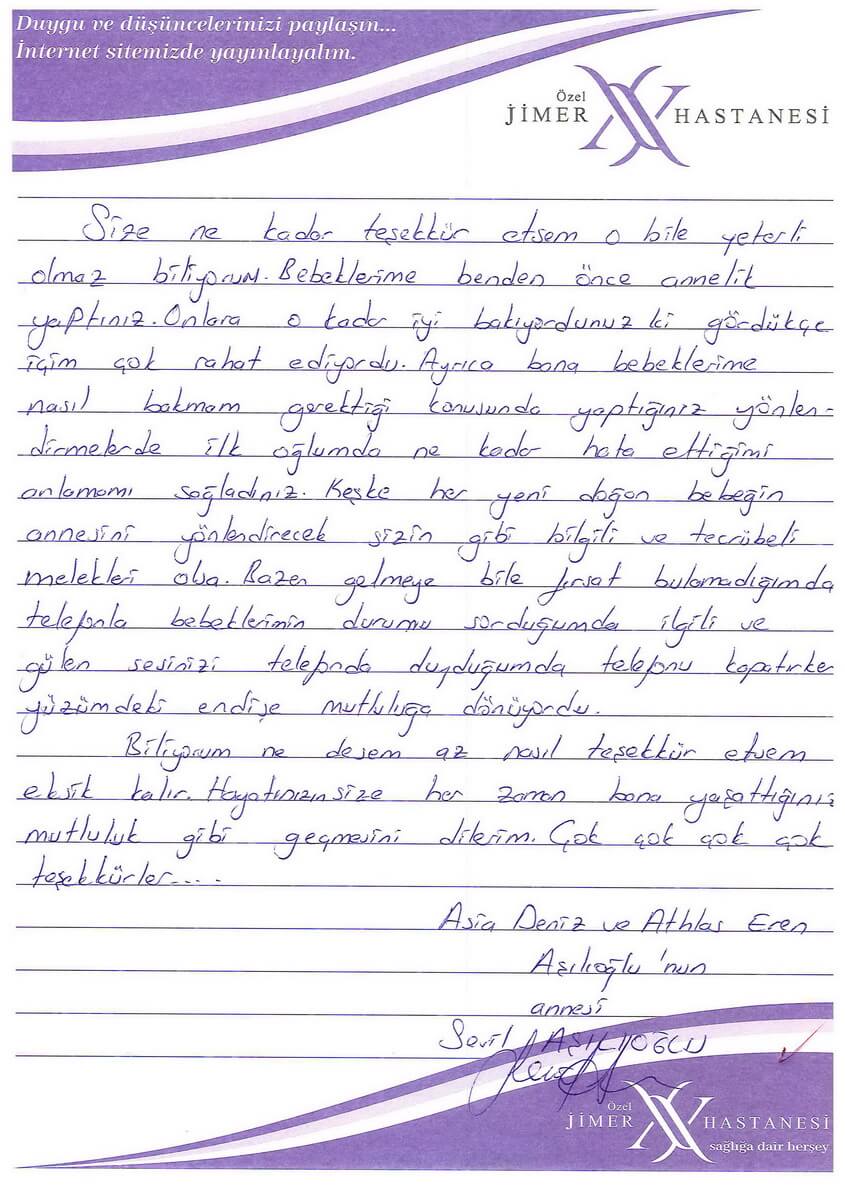 Duygu ve düşüncelerinizi paylaşın...
İnternet sitemizde yayınlayalım.
Özel
JİMER HASTANESİ
Size ne kadar teşekkür etsem o bile yeterli
olmaz biliyorum. Bebeklerime benden önce annelik
yaptınız. Onlara o kadar iyi bakıyordunuz ki gördükçe
içim çok rahat ediyordu. Ayrıca bana bebeklerime
nasıl bakmam gerektiği konusunda yaptığınız yönlen-
dirmelerde ilk oğlumda ne kadar hata ettiğimi
anlamamı sağladınız. Keşke her yeni doğan bebeğin
annesini yönlendirecek sizin gibi bilgili ve tecrübeli
melekleri olsa. Bazen gelmeye bile fırsat bulamadığımda
telefonla bebeklerimin durumu sorduğumda ilgili ve
gülen sesinizi telefonda duyduğumda telefonu kapatırken
yüzümdeki endişe mutluluğa dönüyordu.
Biliyorum ne desem az nasıl teşekkür etsem
eksik kalır. Hayatınızın size her zaman bana yaşattığınız
mutluluk gibi geçmesini dilerim. Çok çok çok çok
teşekkürler....
Asia Deniz ve Athlas Eren
Aşılıoğlu'nun
annesi
Sevil AŞILIOĞLU
Özel
JİMER HASTANESİ
sağlığa dair herşey